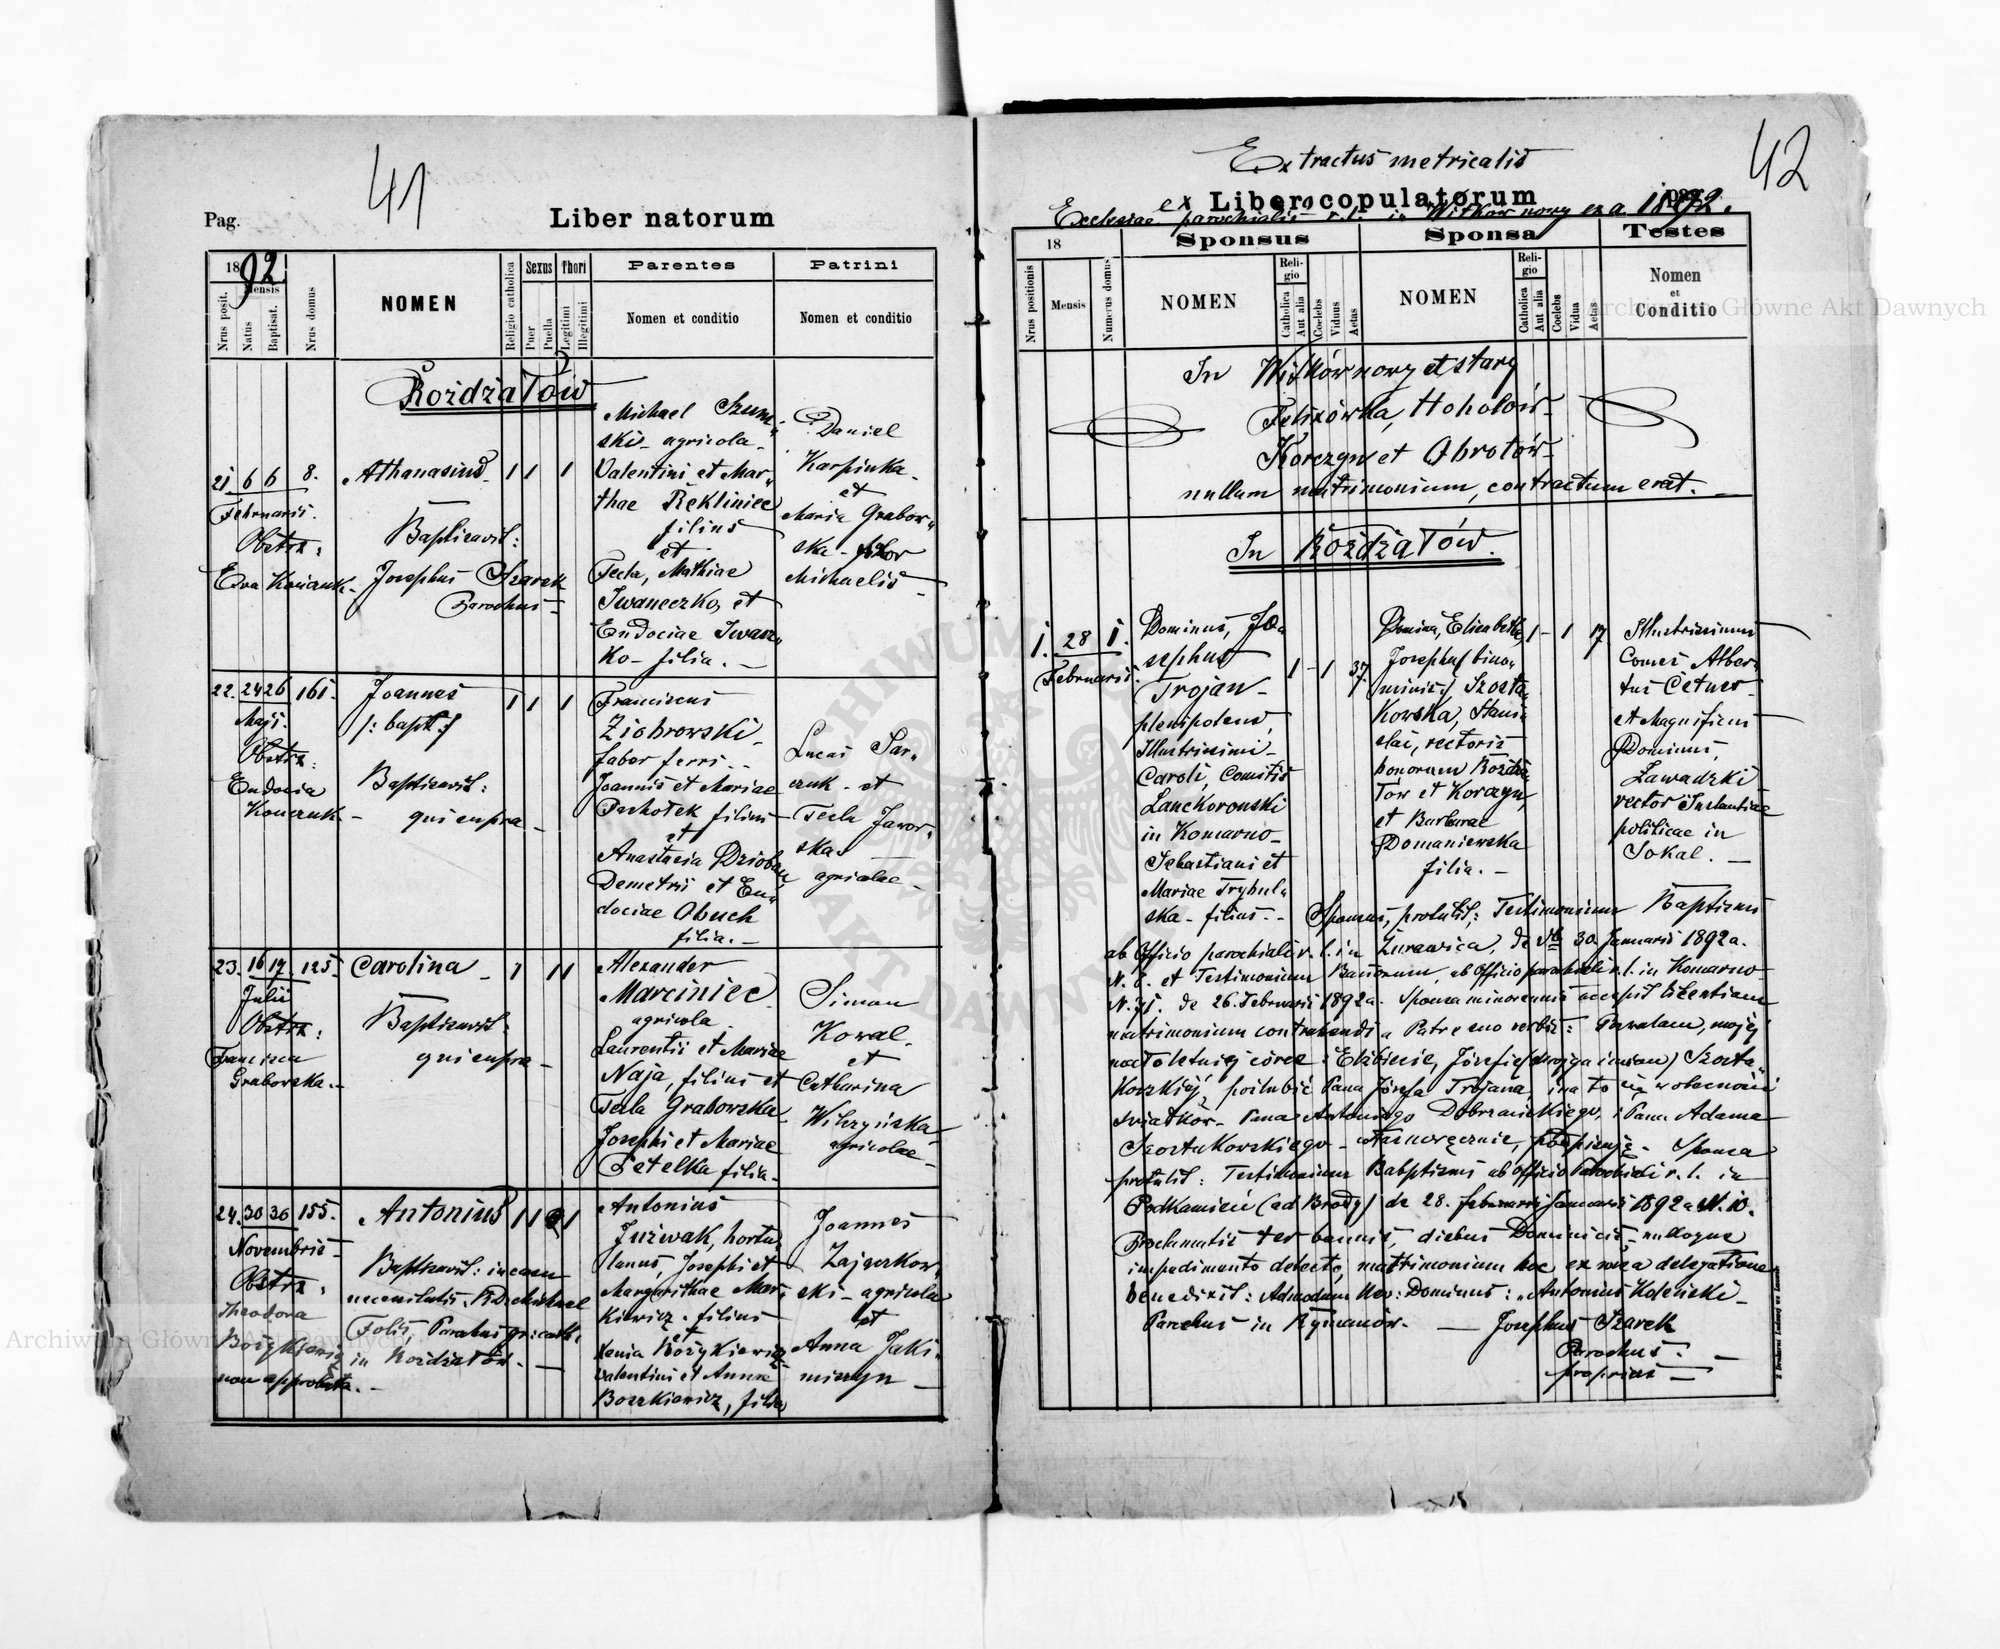 41
Pag.
Liber natorum
1892.
Mensis
Nrus posit.
Natus
Baptisat.
Nrus domus
NOMEN
Religio catholica
Sexus
Puer
Puella
Thori
Legitimi
Illegitimi
Parentes
Nomen et conditio
Patrini
Nomen et conditio
Rożdżałów
21 6 6 8.
Februarii.
Obstx:
Eva
Athanasius
Baptisavit:
Josephus Szarek
Parochus
1 1 1
Michael Szum-
ski agricola
Valentini et Mar-
thae Rekliniec
filius
et
Tecla, Mathiae
Iwaneczko, et
Eudociae Iwasz-
ko filia.
Daniel
Karpinka
et
Maria Grabow-
ska
Michaelis
22. 24 26 161.
Maji.
Obstx:
Eudocia
Joannes
/: bapt:/
Baptisavit:
qui supra
1 1 1
Franciscus
Ziobrowski
faber ferri.
Joannis et Mariae
Pachołek filius
et
Anastasia Dzioban,
Demetrii et Eu-
dociae Obuch
filia.
Lucas Sar-
czuk et
Tecla Jawor-
ska
agricolae
23. 16 17. 125.
Julii
Obstx:
Francisca
Grabowska.
Carolina
Baptisavit:
qui supra
1 1 1
Alexander
Marciniec
agricola
Laurentii et Mariae
Naja, filius et
Tecla Grabowska
Josephi et Mariae
Petelka filia
Simon
Kowal
et
Catharina
Wilczyńska
agricolae
24. 30 30 155.
Novembris
Obstx:
Theodora
non approbata.
Antonius
Baptisavit: in casu
necessitatis, R.D. Michael
in Rożdżałów.
1 1 1
Antonius
Juzwak, hortu-
lanus, Josephi et
Margarithae Mas-
kiewicz filius
et
Xenia Bożykiewicz
Valentini et Anna
Boszkiewicz, filia
Joannes
Zajaczkow-
ski agricola
et
Anna Jaki-
miszyn
42
Extractus metricalis
ex Libero copulatorum
Ecclesiae parochialis r. l. in Witków nowy ex a 1892.
18
Sponsus
Sponsa
Testes
Nrus positionis
Mensis
Numerus domus
NOMEN
Reli-
gio
Catholica
Aut alia
Coelebs
Viduus
Aetas
NOMEN
Reli-
gio
Catholica
Aut alia
Coelebs
Vidua
Aetas
Nomen
et
Conditio
In Witków nowy et stary
Felixówka, Hohołów
Korczyn et Obrotów
nullum matrimonium, contractum erat.
In Rożdżałów.
1. 28 1.
Februarii.
Dominus, Jo-
sephus
Trojan
plenipotens,
Illustrissimi
Caroli, Comitis
Lanckoronski
in Komarno
Sebastiani et
Mariae Trybul-
ska filius.
1 1 37
Domina, Elisabetha,
Josepha (bino-
minis), Szosta-
kowska, Stani-
slai, rectoris
bonorum Rożdża-
łów et Korczyn,
et Barbarae
Domaniewska
filia.
1 1 17
Illustrissimus
Comes Alber-
tus Cetner
et Magnificus
Dominus,
Zawadzki
rector Instantiae
politicae in
Sokal.
Sponsus, protulit: Testimonium Baptismi
ab Officio parochiali r. l. in Żurawica, de 30. Januarii 1892 a.
N. 8. et Testimonium Bannorum, ab Officio parochiali r. l. in Komarno
N. 71. de 26. Februarii 1892 a. Sponsa minorennis accepit licentiam
matrimonium contrahendi a Patre suo verbis: Pozwalam, mojej
małoletniej córce: Elżbiecie, Józefie (dwojga imion) Szosta-
kowskiej, poślubić Pana Józefa Trojana, i na to się w obecności
świadków Pana Antoniego Dobrzanieckiego, i Pana Adama
Szostakowskiego własnoręcznie, podpisuję. Sponsa
protulit: Testimonium Babptismi ab Officio Parochiali r. l. in
Podkamień (ad Brody) de 28. Januarii 1892 a N. 10.
Proclamatis ter bannis, diebus Dominicis, nulloque
impedimento detecto, matrimonium hoc, ex mea delegatione
benedixit: Admodum Rev: Dominus: Antonius Koleński
Parochus in Rymanów. Josephus Szarek
Parochus.
proprius
Archiwum Główne Akt Dawnych
Archiwum Główne Akt Dawnych
ARCHIWUM
AKT DAWNYCH